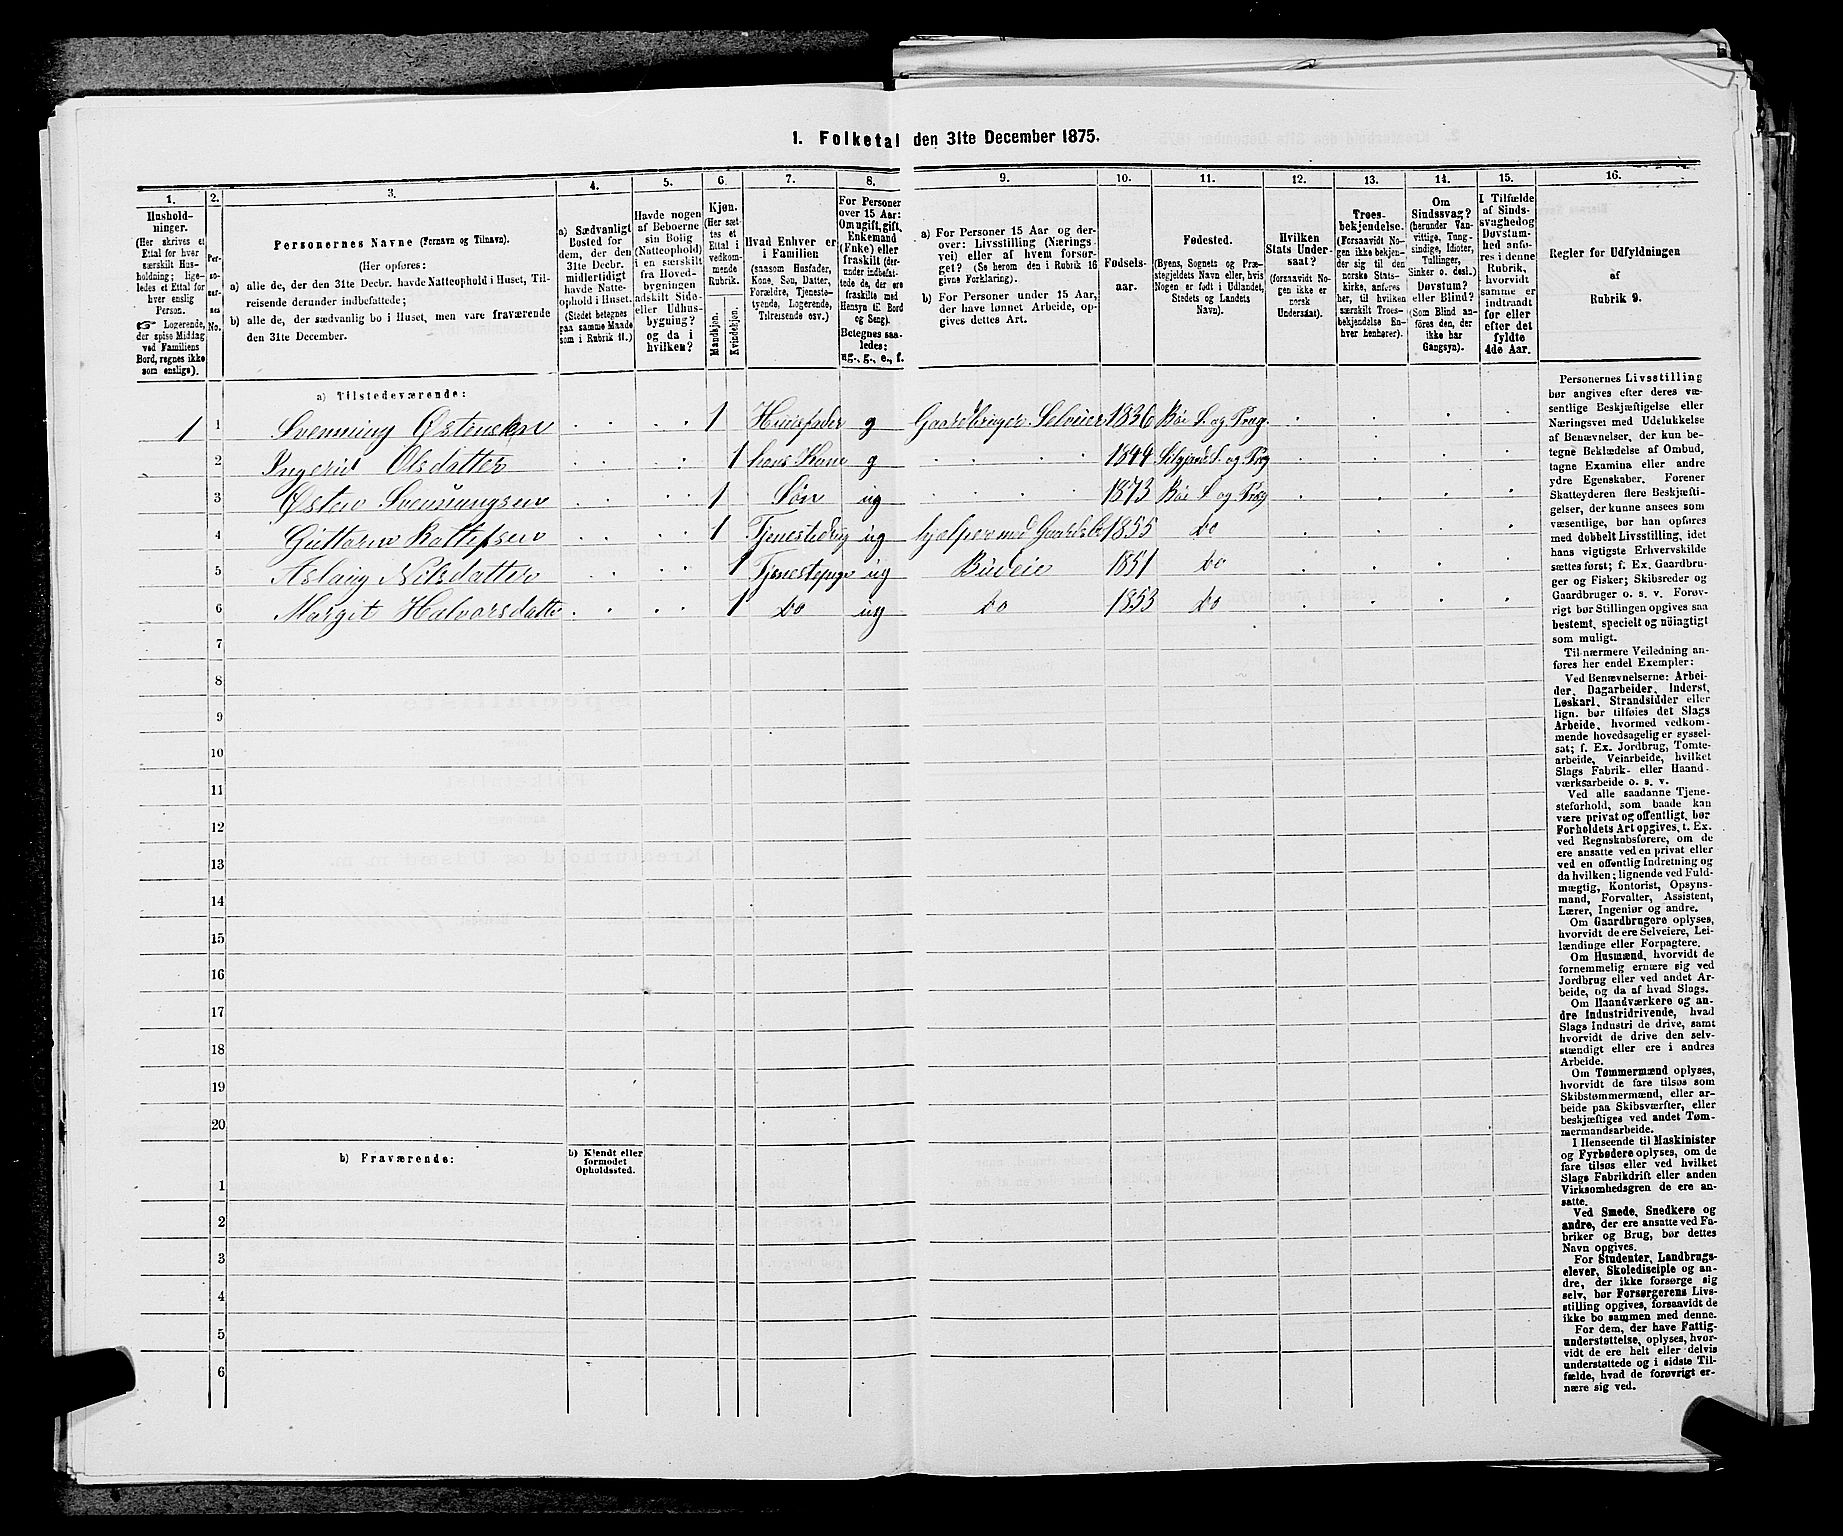 1. Folketal den 31te December 1875.
1. 2. 3. 4. 5. 6. 7. 8. 9. 10. 11. 12. 13. 14. 15. 16.
Hushold-
ninger.
(Her skrives et
Ettal for hver
særskilt Hus-
holdning; lige-
ledes et Ettal for
hver enslig
Person.
☞ Logerende,
der spise Middag
ved Familiens
Bord, regnes ikke
som enslige).
Per-
so-
ner-
nes
No.
Personernes Navne (Fornavn og Tilnavn).
(Her opføres:
a) alle de, der den 31te Decbr. havde Natteophold i Huset, Til-
reisende derunder indbefattede;
b) alle de, der sædvanlig bo i Huset, men vare fraværende
den 31te December.
a) Sædvanligt
Bosted for
dem, der den
31te Decbr.
midlertidigt
havde Natte-
ophold i Huset.
(Stedet betegnes
paa samme Maade
som i Rubrik 11.)
Havde nogen
af Beboerne
sin Bolig
(Natteophold)
i en særskilt
fra Hoved-
bygningen
adskilt Side-
eller Udhus-
bygning?
og da i
hvilken?
Kjøn.
(Her sæt-
tes et
Ettal i
vedkom-
mende
Rubrik.
Mandkjøn.
Kvindekjøn.
Hvad Enhver er
i Familien
(saasom Husfader,
Kone, Søn, Datter,
Forældre, Tjeneste-
tyende, Logerende,
Tilreisende osv.)
For Personer
over 15 Aar:
Om ugift, gift,
Enkemand
(Enke) eller
fraskilt (der-
under indbefat-
tede de, der ere
fraskilte med
Hensyn til Bord
og Seng).
Betegnes saa-
ledes:
ug., g., e., f.
a) For Personer 15 Aar og der-
over: Livsstilling (Nærings-
vei) eller af hvem forsør-
get? (Se herom den i Rubrik 16
givne Forklaring).
b) For Personer under 15 Aar,
der have lønnet Arbeide, op-
gives dettes Art.
Fødsels-
aar.
Fødested.
(Byens, Sognets og Præ-
stegjeldets Navn eller, hvis
Nogen er født i Udlandet,
Stedets og Landets
Navn).
Hvilken
Stats Under-
saat?
(forsaavidt No-
gen ikke er
norsk
Undersaat).
Troes-
bekjendelse.
(Forsaavidt No-
gen ikke bekjen-
der sig til den
norske Stats-
kirke, anføres
her, til hvilken
særskilt Troes-
bekjendelse En-
hver henhører).
Om
Sindssvag?
(herunder Van-
vittige, Tung-
sindige, Idioter,
Tullinger,
Sinker o. desl.)
Døvstum?
eller Blind?
(Som Blind an-
føres den, der
ikke har
Gangsyn).
I Tilfælde
af Sinds-
svaghed og
Døvstum-
hed anfø-
res i denne
Rubrik,
hvorvidt
samme er
indtraadt
før eller
efter det
fyldte
4de Aar.
Regler for Udfyldningen
af
Rubrik 9.
a) Tilstedeværende:
1 1 Svenning Østensen 1 Huusfader g Gaardbruger Selveier 1836 Bøe S. og Præg.
2 Ingerid Olsdatter 1 hans Kone g 1844 Silgjord S. og Præg
3 Østen Svenningsen 1 Søn ug 1873 Bøe S og Præg
4 Guttorm Rollefsen 1 Tjenestedreng ug hjelper med Gaardsbr 1855 do
5 Aslaug Nilsdatter 1 Tjenestepige ug Budeie 1851 do
6 Margit Halvorsdatter 1 do ug do 1853 do
7
8
9
10
11
12
13
14
15
16
17
18
19
20
b) Fraværende:
b) Kjendt eller
formodet
Opholdssted.
1
2
3
4
5
6
Personernes Livsstilling
bør angives efter deres væ-
sentlige Beskjæftigelse eller
Næringsvei med Udelukkelse
af Benævnelser, der kun be-
tegne Beklædelse af Ombud,
tagne Examina eller andre
ydre Egenskaber. Forener
Skatteyderen flere Beskjæfti-
gelser, der kunne ansees som
væsentlige, bør han opføres
med dobbelt Livsstilling, idet
hans vigtigste Erhvervskilde
sættes først; f. Ex. Gaardbru-
ger og Fisker; Skibsreder og
Gaardbruger o. s. v. Forøv-
rigt bør Stillingen opgives saa
bestemt, specielt og nöiagtigt
som muligt.
Til nærmere Veiledning an-
føres her endel Exempler:
Ved Benævnelserne: Arbei-
der, Dagarbeider, Inderst,
Løskarl, Strandsidder eller
lign. bør tilføies det Slags
Arbeide, hvormed vedkom-
mende hovedsagelig er syssel-
sat; f. Ex. Jordbrug, Tomte-
arbeide, Veiarbeide, hvilket
Slags Fabrik- eller Haand-
værksarbeide o. s. v.
Ved alle saadanne Tjene-
steforhold, som baade kan
være privat og offentligt, bør
Forholdets Art opgives, t. Ex.
ved Regnskabsførere, om de
ere ansatte ved en privat eller
ved en offentlig Indretning og
da hvilken; lignende ved Fuld-
mægtig, Kontorist, Opsyns-
mand, Forvalter, Assistent,
Lærer, Ingeniør og andre.
Om Gaardbrugere oplyses,
hvorvidt de ere Selveiere, Lei-
lændinge eller Forpagtere.
Om Husmænd, hvorvidt de
fornemmelig ernære sig ved
Jordbrug eller ved andet Ar-
beide, og da af hvad Slags.
Om Haandværkere og an-
dre Industridrivende, hvad
Slags Industri de drive, samt
hvorvidt de drive den selv-
stændigt eller ere i andres
Arbeide.
Om Tømmermænd oplyses,
hvorvidt de fare tilsøs som
Skibstømmermænd, eller ar-
beide paa Skibsværfter, eller
beskjæftiges ved andet Tøm-
mermandsarbeide.
I Henseende til Maskinister
og Fyrbødere oplyses, om de
fare tilsøs eller ved hvilket
Slags Fabrikdrift eller anden
Virksomhedsgren de ere an-
satte.
Ved Smede, Snedkere og
andre, der ere ansatte ved Fa-
briker og Brug, bør dettes
Navn opgives.
For Studenter, Landbrugs-
elever, Skoledisciple og an-
dre, der ikke forsørge sig
selv, bør Forsørgerens Livs-
stilling opgives, forsaavidt de
ikke bo sammen med denne.
For dem, der have Fattig-
understøttelse, oplyses, hvor-
vidt de ere helt eller delvis
understøttede og i sidste Til-
fælde, hvad de forøvrigt er-
nære sig ved.